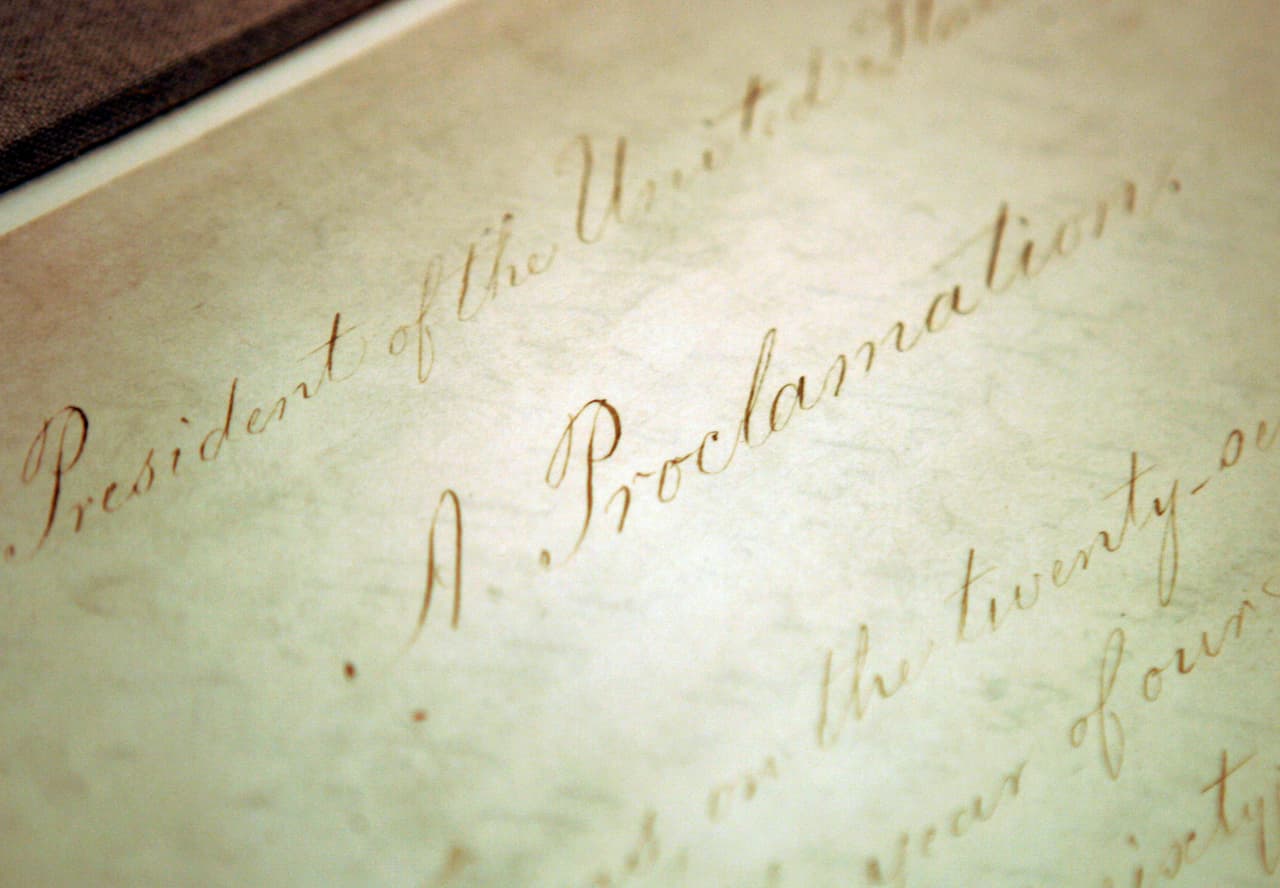 President of the United
A Proclamation.
on the twenty-se
year of our
sixty